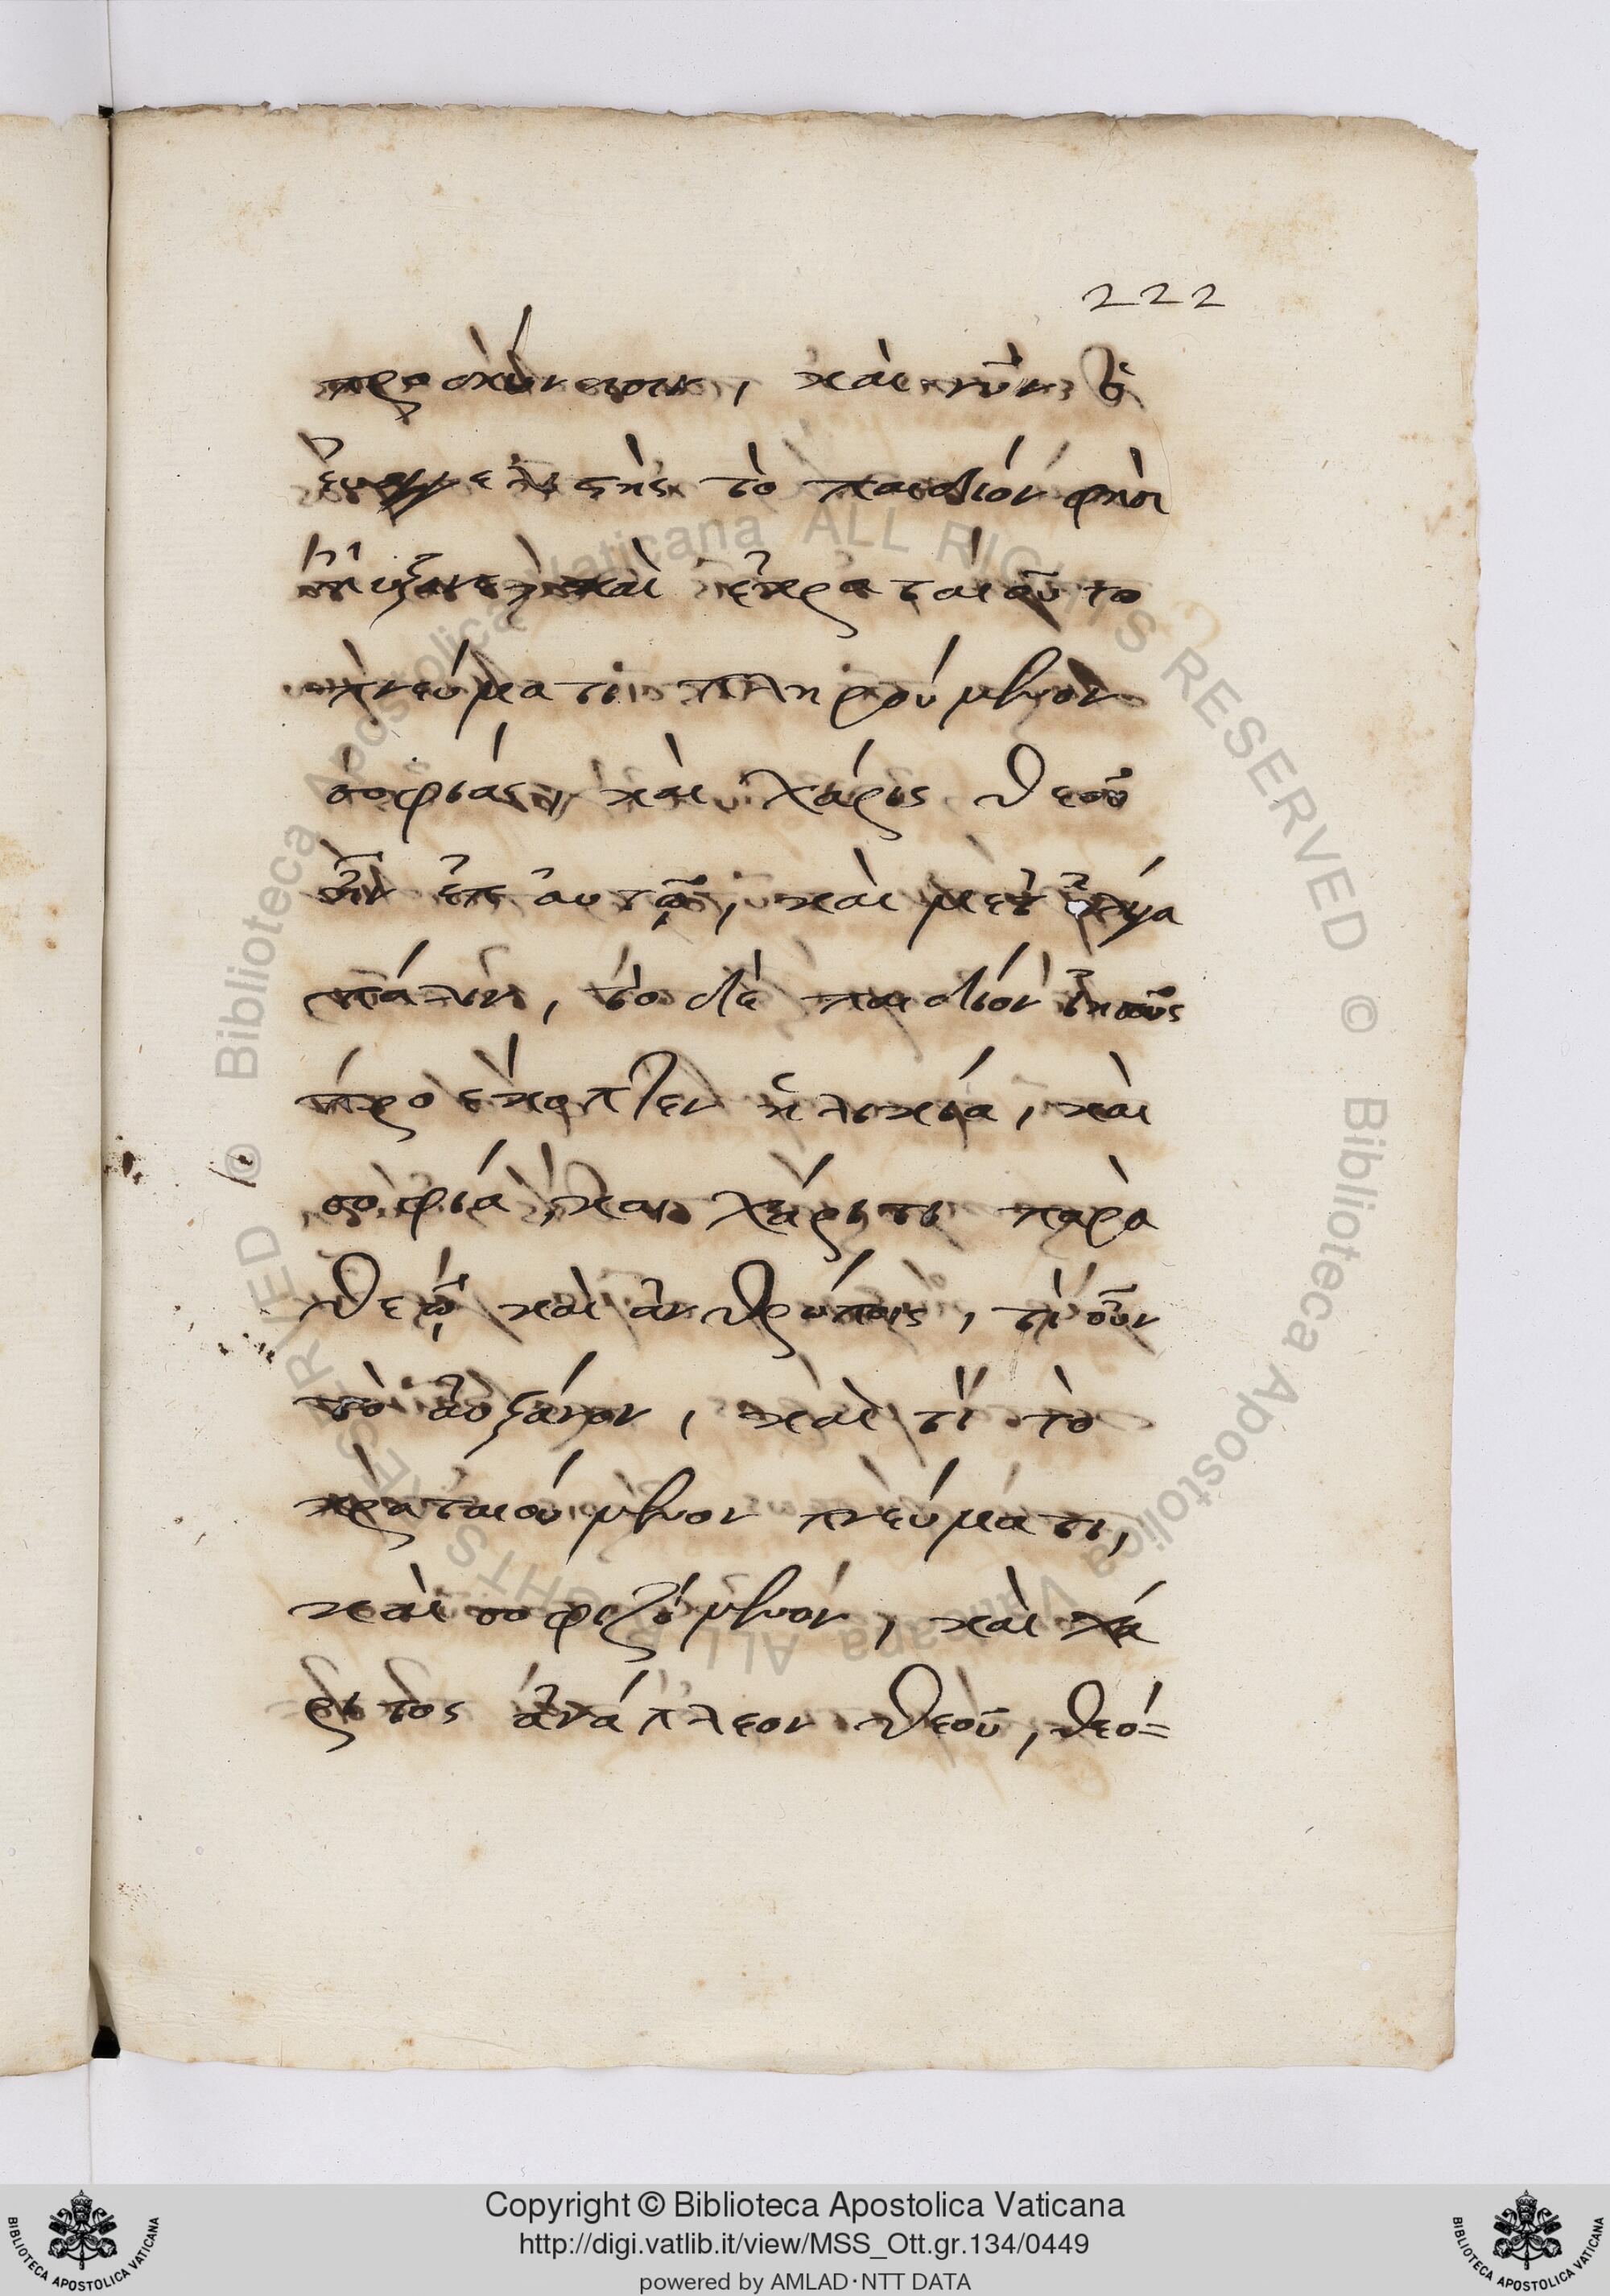 222
προσκύνησιν, καὶ νῦν ὁ
εὐαγγελιστὴς τὸ παιδίον φησὶ
ηὔξανε καὶ ἐκραταιοῦτο
πνεύματι πληρούμενον
σοφίας, καὶ χάρις θεοῦ
ἦν ἐπ αυτῷ, καὶ μετ
πάλιν, τὸ δὲ παιδίον ἰησοῦς
προέκοπτεν ἡλικία, καὶ
σοφία, καὶ χάριτι παρὰ
θεῷ καὶ ἀνθρώποις, τί οὖν
τὸ ἀυξάνον, καὶ τί τὸ
κραταιούμενον πνεύματι,
καὶ σοφιζόμενον, καὶ χά
ριτος ἀνάπλεον θεοῦ, θεό=
Copyright © Biblioteca Apostolica Vaticana
http://digi.vatlib.it/view/MSS_Ott.gr.134/0449
powered by AMLAD·NTT DATA
BIBLIOTECA APOSTOLICA VATICANA
BIBLIOTECA APOSTOLICA VATICANA
© Biblioteca Apostolica Vaticana ALL RIGHTS RESERVED
© Biblioteca Apostolica Vaticana ALL RIGHTS RESERVED